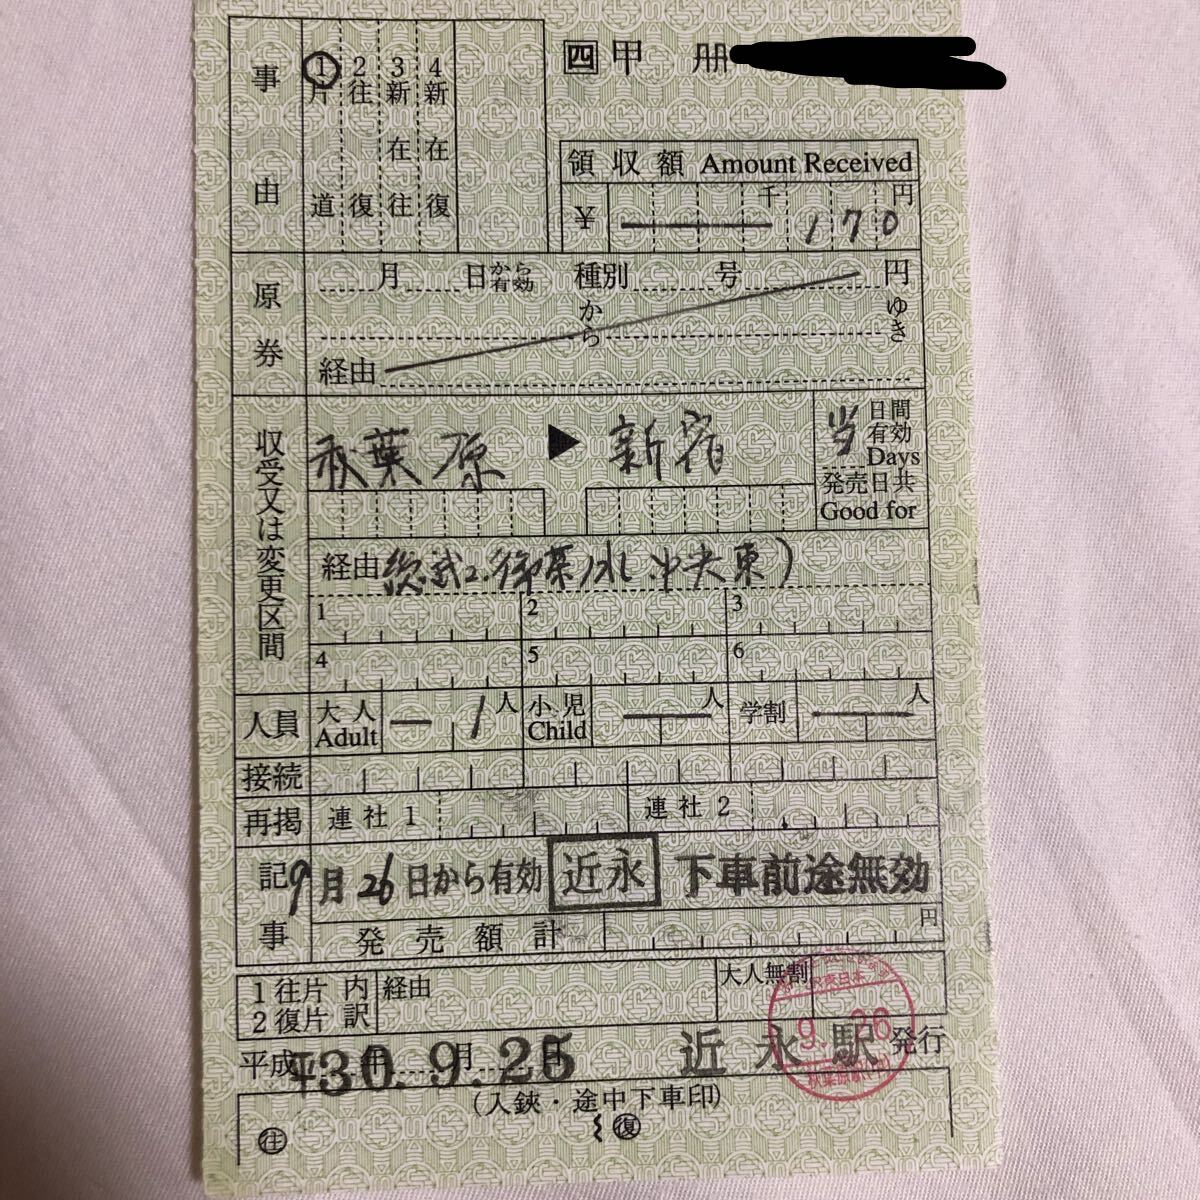 四 甲 册
事由
1片道 2往復 3新在往 4新在復
領収額 Amount Received
¥ 千 170 円
原券
月 日から有効 種別 号 円
から ゆき
経由
収受又は変更区間
秋葉原 ▶ 新宿
当 日間有効 Days
発売日共 Good for
経由 総武2、御茶ノ水、中央東)
1 2 3
4 5 6
人員 大人 Adult 1 人 小児 Child 人 学割 人
接続
再掲 連社 1 連社 2
記事
9月26日から有効 近永 下車前途無効
発売額計 円
1往片 2復片 内訳 経由 大人無割
JR東日本
9.26
秋葉原駅
平成 年 月 日 平30.9.25 近永駅 発行
(入鋏・途中下車印)
往 復